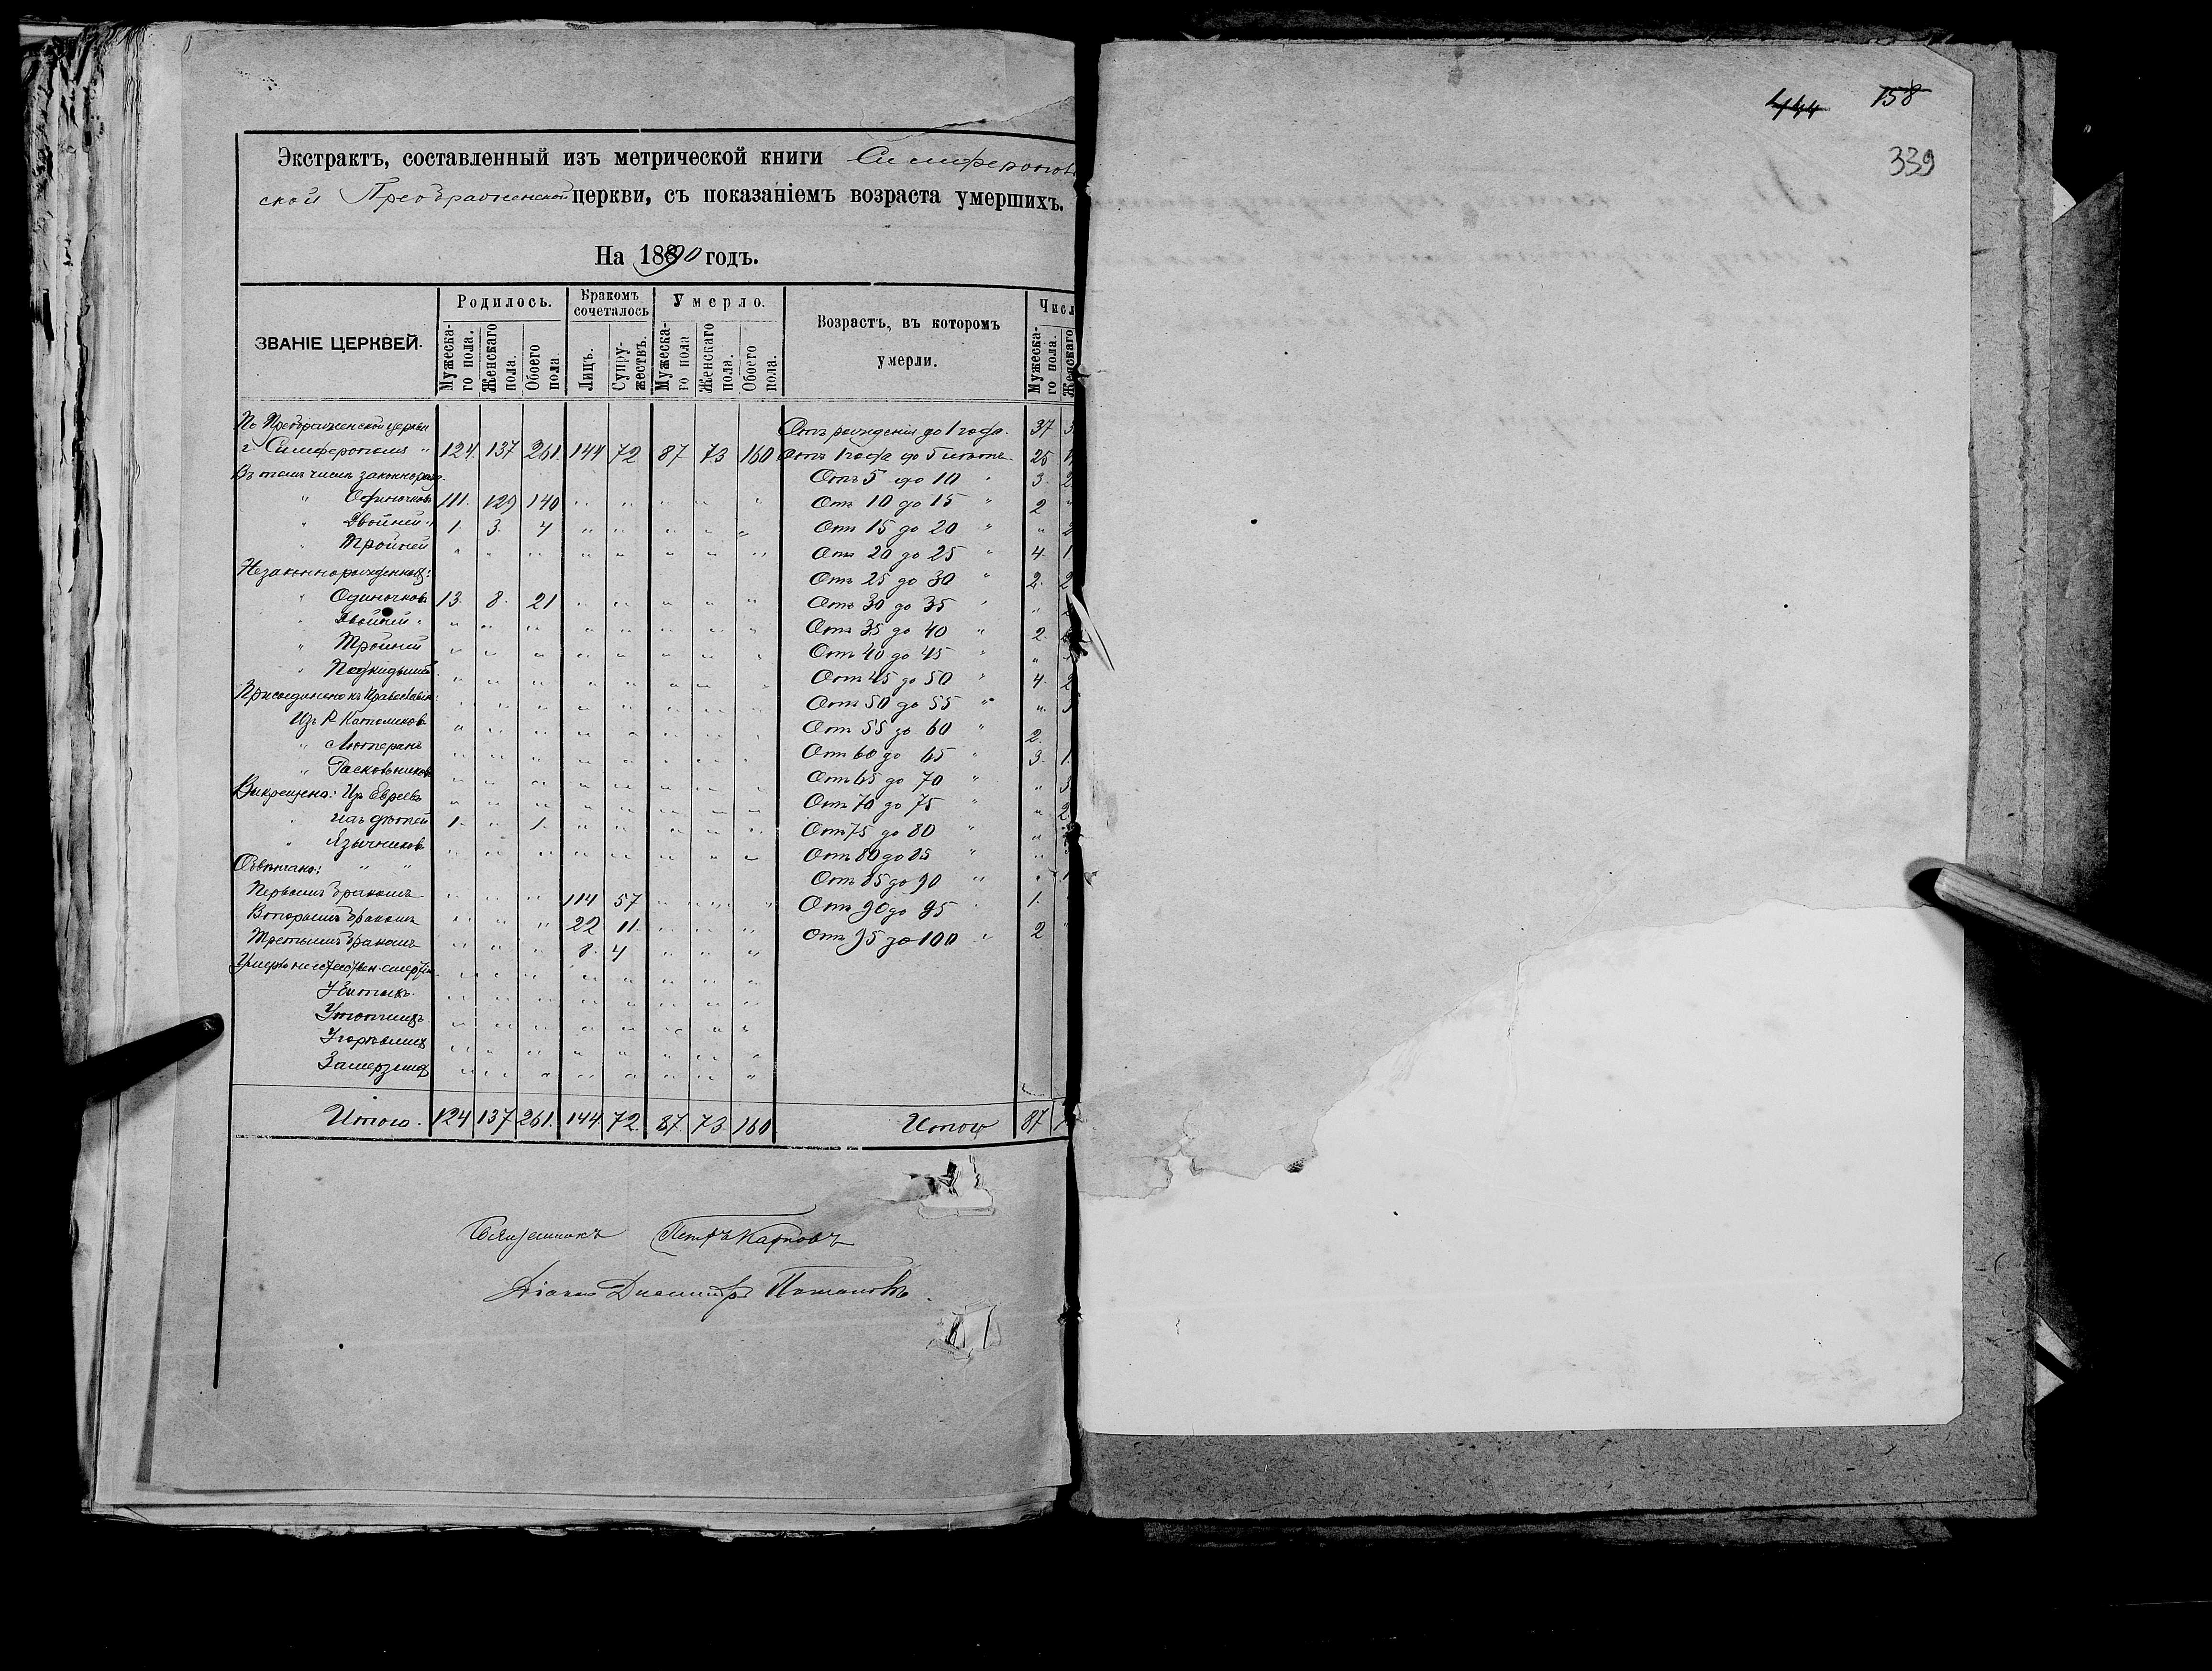 Экстрактъ, составленный изъ метрической книги Симферополь
ской Преображенской церкви, съ показаніемъ возраста умершихъ.
На 1890 годъ.
ЗВАНІЕ ЦЕРКВЕЙ.
Родилось.
Бракомъ сочеталось
Умерло.
Возрастъ, въ которомъ умерли.
Числ
Мужеска-го пола.
Женскаго пола.
Обоего пола
Лицъ.
Супру-жествъ.
Мужеска-го пола
Женскаго пола.
Обоего пола.
Мужеска-го пола.
Женскаго
По Преображенской церкви Отъ рожденія до 1 года. 37
г. Симферополя " 124. 137 261. 144 72 87 73 160 Отъ 1 года до 5 летъ 25
Въ томъ числе законнорожд. Отъ 5 до 10 " 3. 2
" Одиночковъ 111. 129 140 Отъ 10 до 15 " 2 "
" Двойней " 1. 3. 4 Отъ 15 до 20 " " 2
" Тройней Отъ 20 до 25 " 4. 1
Незаконнорожденныхъ: Отъ 25 до 30 " 2. 2
" Одиночковъ 13. 8. 21 Отъ 30 до 35 " "
" Двойней " Отъ 35 до 40 " 2.
" Тройней Отъ 40 до 45 " "
" Подкидышей Отъ 45 до 50 " 4. 2
Присоединено къ Православію: Отъ 50 до 55 " "
Изъ Р. Католиковъ Отъ 55 до 60 " 2.
" Лютеранъ Отъ 60 до 65 " 3. 1.
" Раскольниковъ Отъ 65 до 70 " "
Выкрещено: Изъ Евреевъ Отъ 70 до 75 " " 2
1. " 1. Отъ 75 до 80 " "
" Язычниковъ Отъ 80 до 85 " "
Обвѣнчано: " " Отъ 85 до 90 " "
Первымъ бракомъ 114 57 Отъ 90 до 95 " 1.
Вторымъ бракомъ 22 11 Отъ 95 до 100 " 2
Третьимъ бракомъ 8. 4
Убитыхъ
Утопшихъ
Угорѣвшихъ
Замерзшихъ
Итого. 124 137 261. 144 72. 87. 73. 160 Итого 87
Священникъ Петръ Карповъ
Діаконъ Димитрій
444 158
339